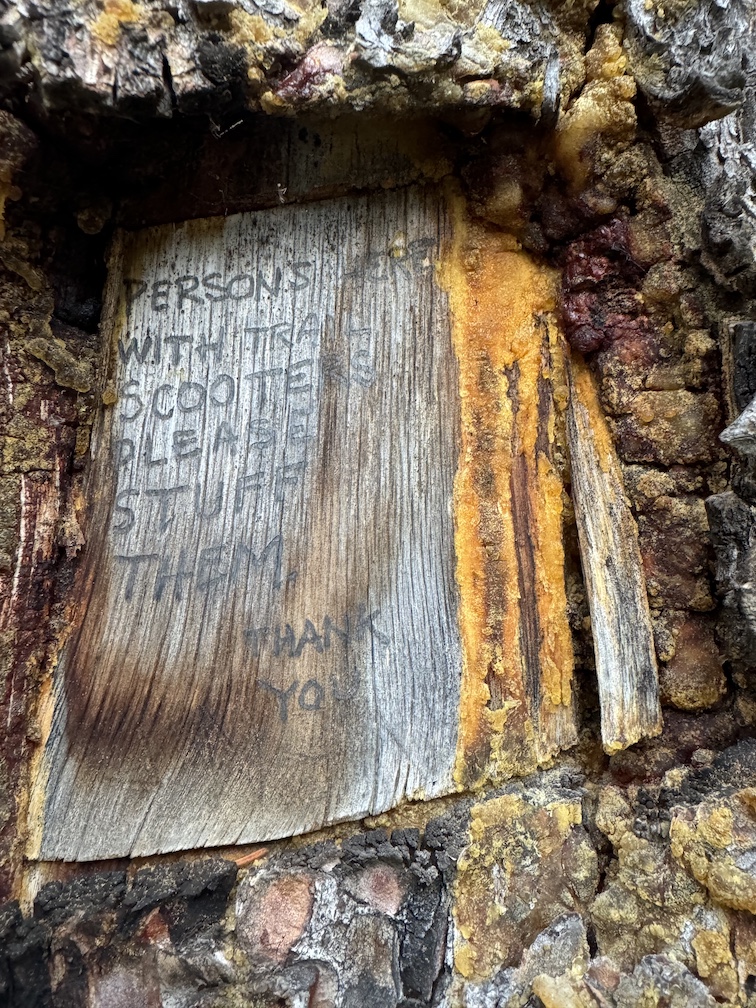 PERSONS HERE
WITH TRAIL
SCOOTERS
PLEASE
STUFF
THEM.
THANK
YOU